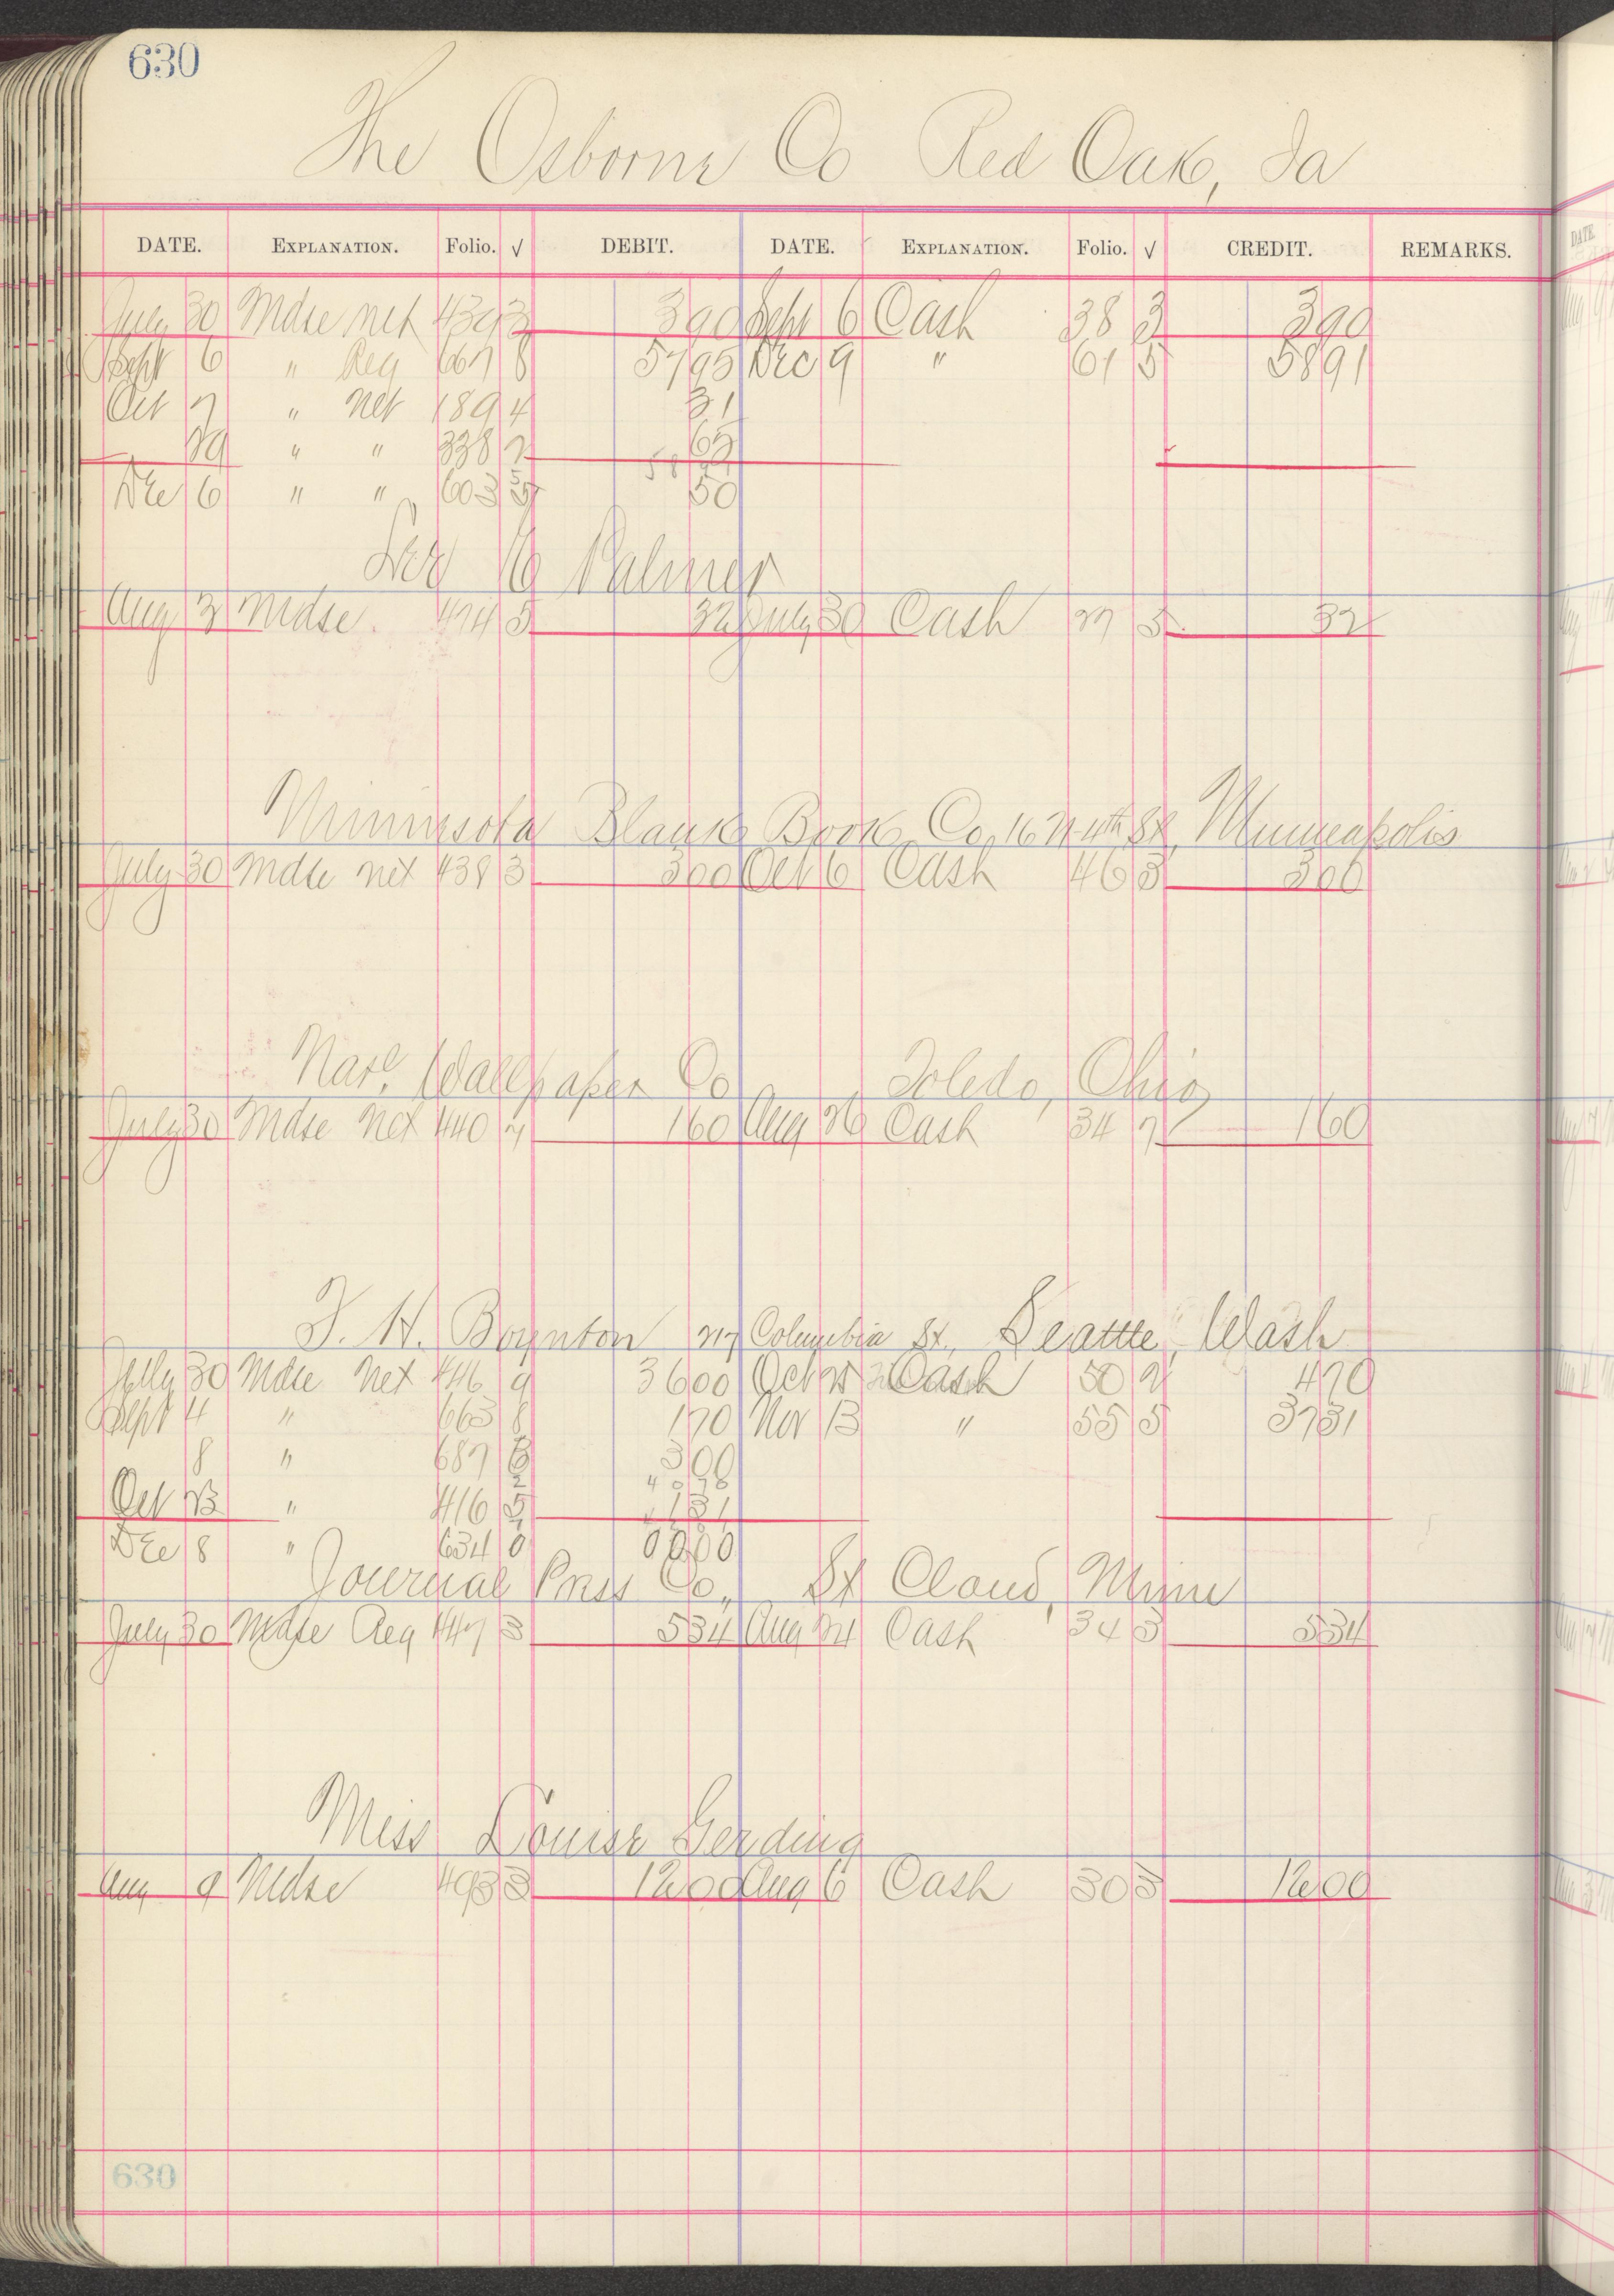 630
The Osborne Co Red Oak, Ia
DATE. EXPLANATION. Folio. √ DEBIT. DATE. EXPLANATION. Folio. √ CREDIT. REMARKS.
July 30 Mdse net 439 3 390 Sept 6 Cash 38 3 390
Sept 6 " Reg 667 8 5795 Dec 9 " 61 5 5891
Oct 7 " net 189 4 31
" " 338 65
Dec 6 " " 603 5 50
Palmer
Aug 3 Mdse. 474 5 32 July 30 Cash 29 5 32
Minnesota Blank Book Co, 16 N 4th St, Minneapolis
July 30 Mdse net 438 3 300 Oct 6 Cash 46 3 300
Natl. Wallpaper Co, Toledo, Ohio
July 30 Mdse net 440 7 160 Aug 26 Cash 34 7 160
J. H. Boynton Columbia St, Seattle, Wash
July 30 Mdse Net 446 9 3600 Oct Cash 50 2 470
Sept 4 " 663 8 170 Nov 13 " 55 5 3731
8 " 687 8 300
Oct 23 " 416 5 131
Dec 8 " 634 0
Journal Press Co., St Cloud, Minn
July 30 Mdse Reg 447 3 534 Aug 24 Cash 34 3 534
Miss Louise Gerding
Aug 9 Mdse 493 3 1200 Aug 6 Cash 30 3 1200
630